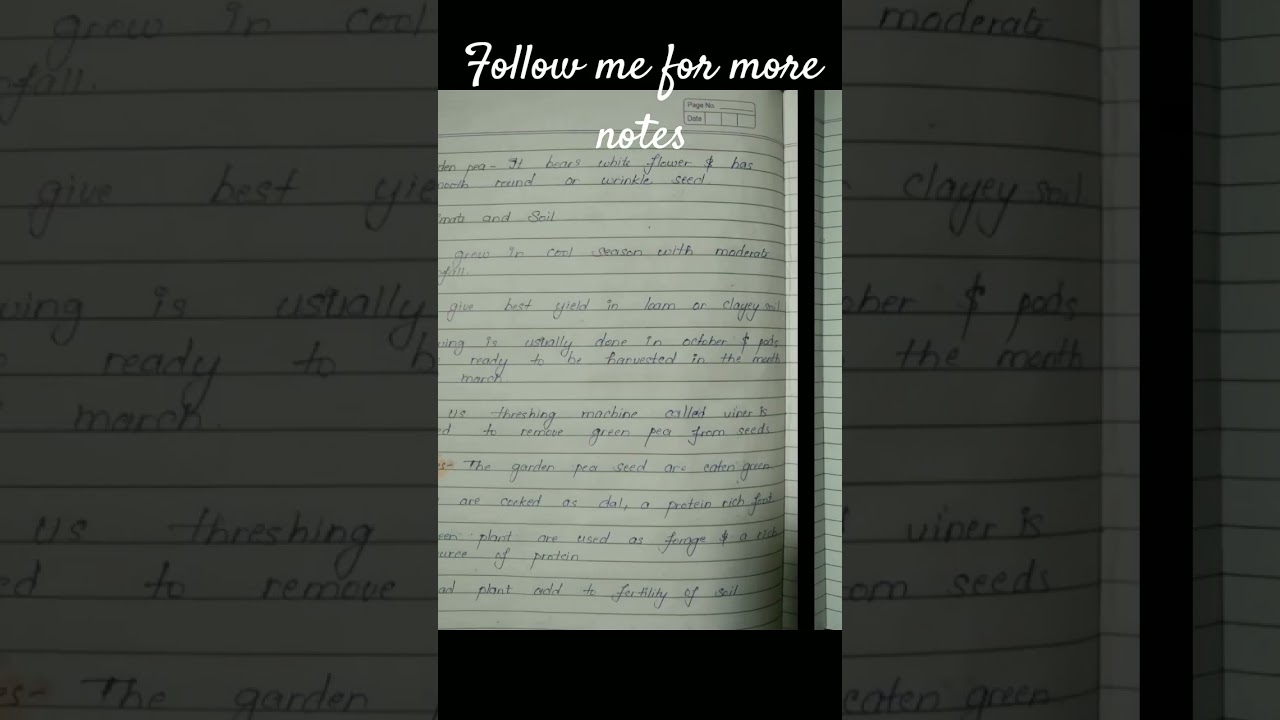 Follow me for more
notes
Page No.
Date
den pea - It bears white flower & has
smooth round or wrinkle seed
imate and Soil
grow in cool season with moderate
nfall.
give best yield in loam or clayey soil
wing is usually done in october & pods
ready to be harvested in the month
march
US threshing machine called viner is
ed to remove green pea from seeds
es- The garden pea seed are eaten green
are cooked as dal, a protein rich food
een plant are used as forage & a rich
ource of protein
ad plant add to fertility of soil